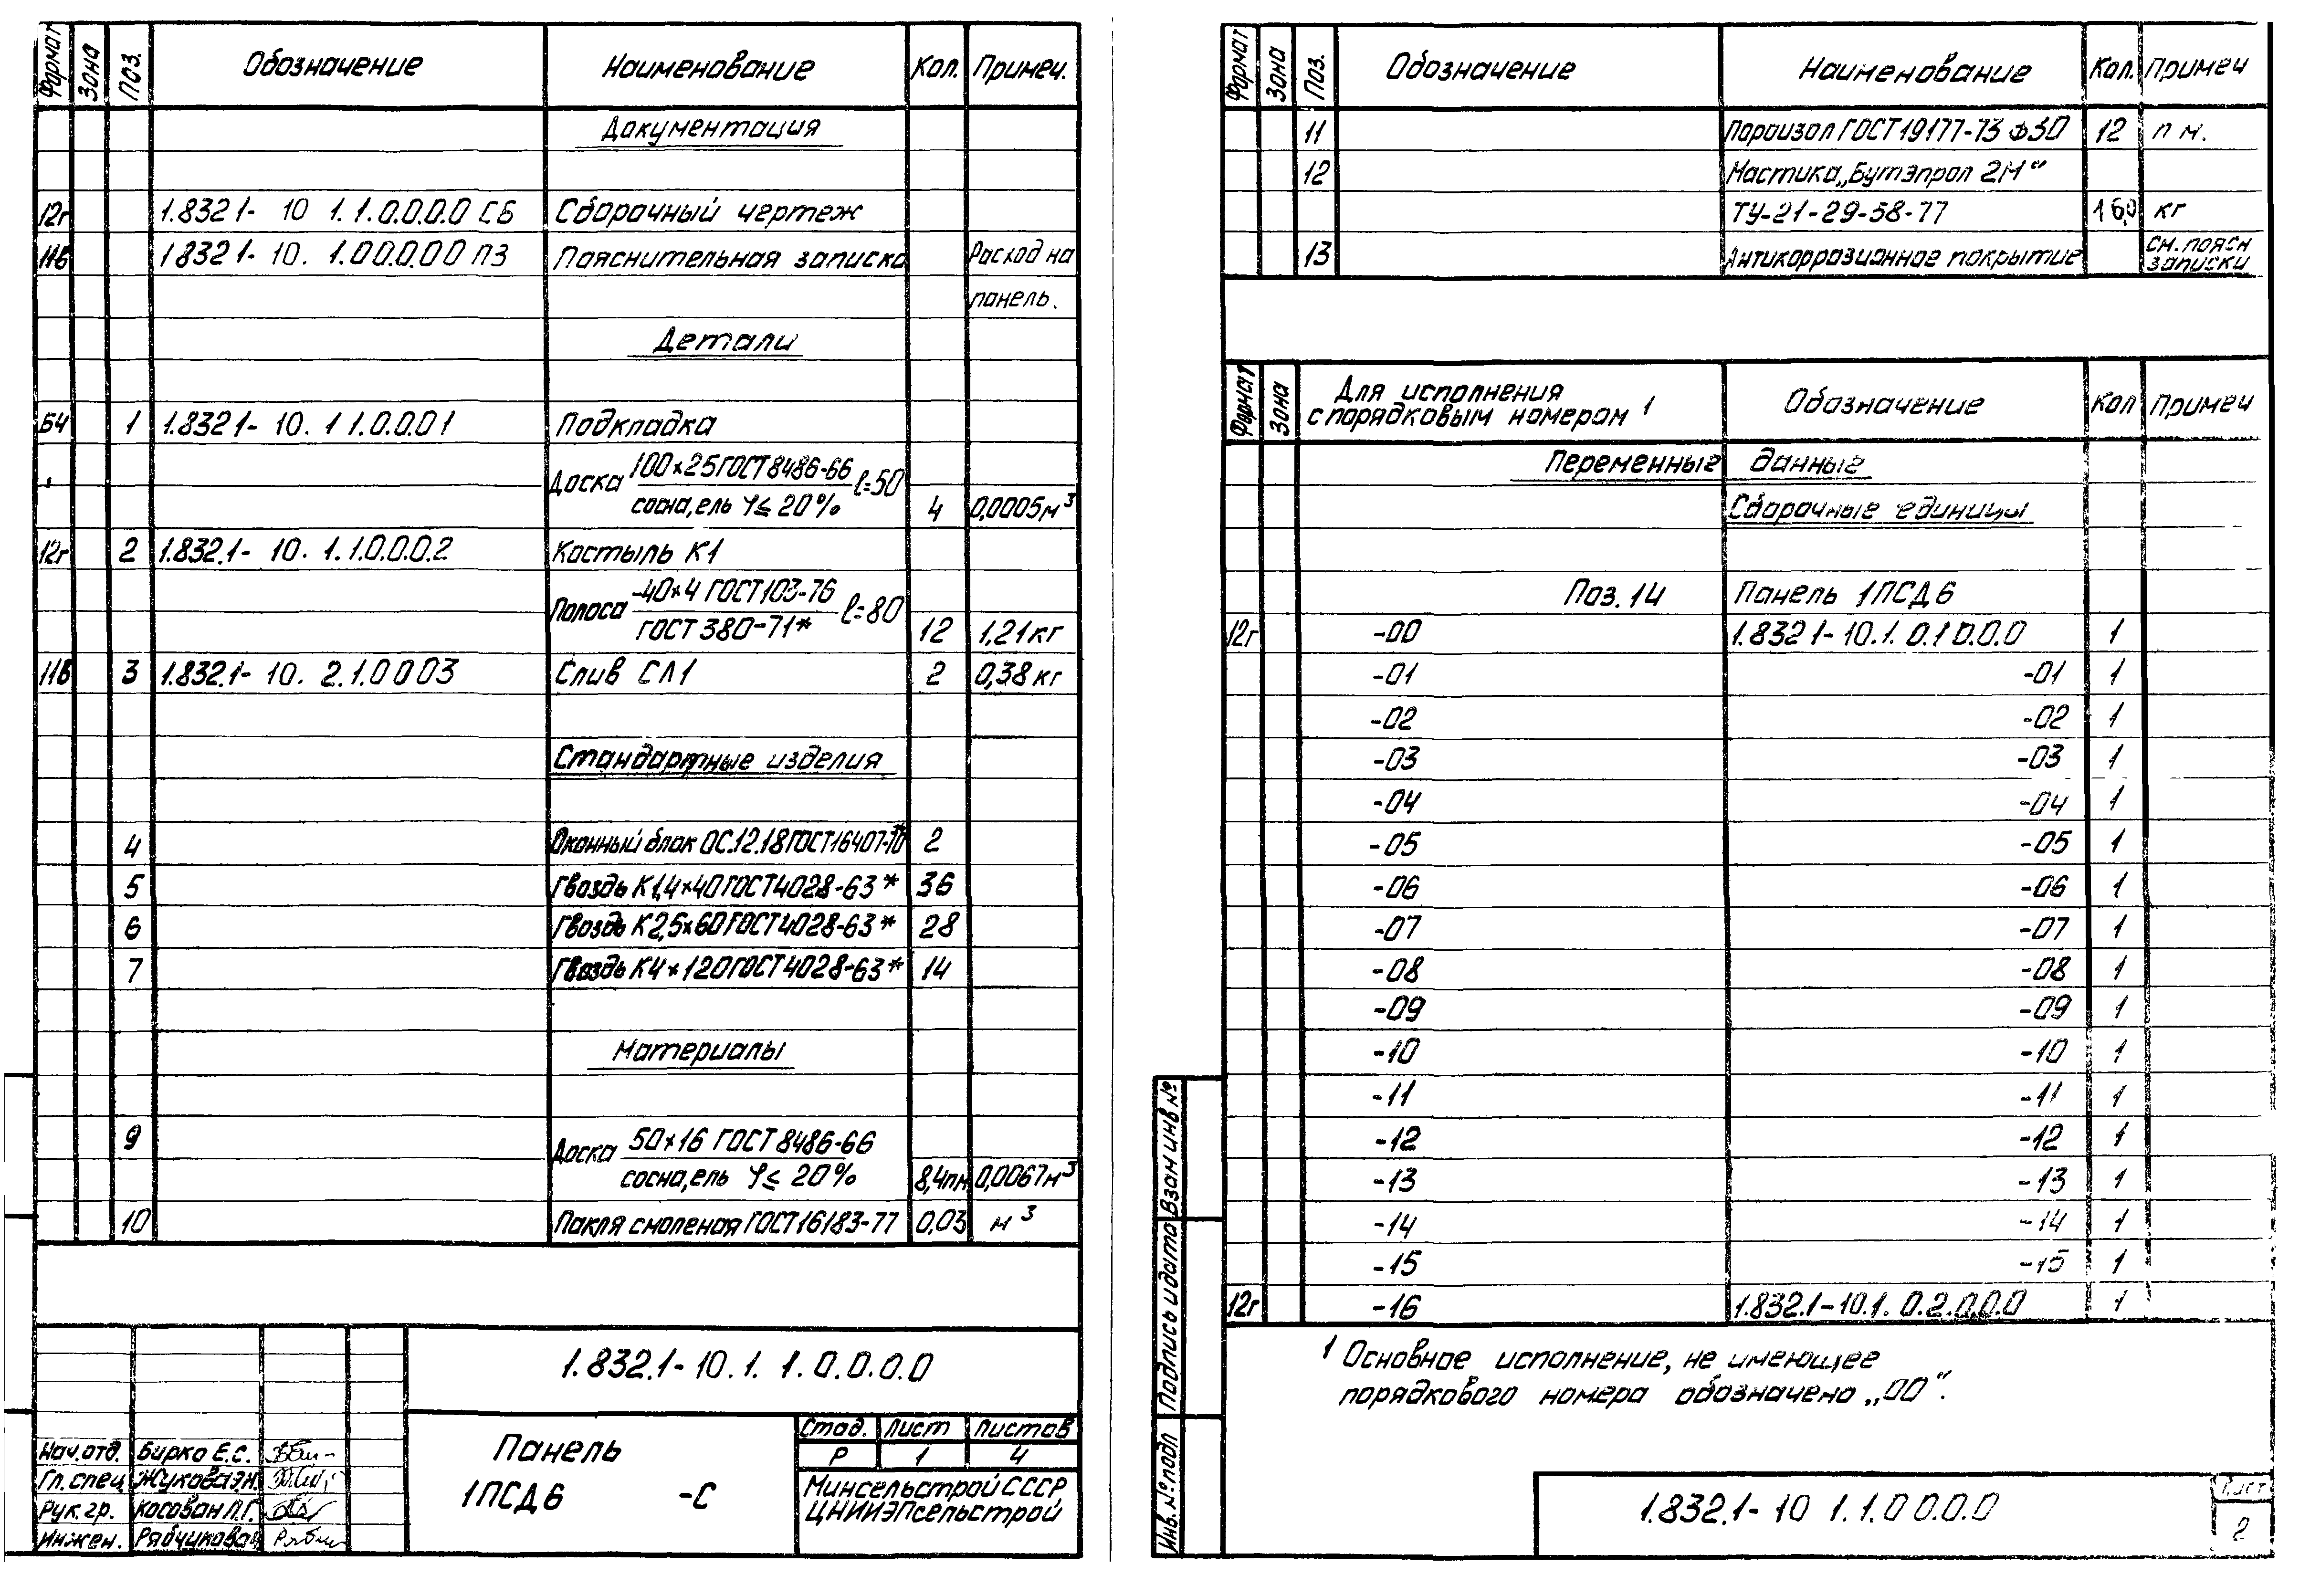 Формат Зона Поз. Обозначение Наименование Кол. Примеч.
Документация
12г 1.832 1- 10 1.1.0.0.0.0 СБ Сборочный чертеж
11В 1 832 1- 10. 1.00.0.00 ПЗ Пояснительная записка Расход на
панель.
Детали
БЧ 1 1.832 1- 10. 1 1.0.0.01 Подкладка
Доска 100×25 ГОСТ 8486-66 ℓ=50
сосна, ель φ≤ 20% 4 0,0005м³
12г 2 1.832.1- 10. 1.1.0.0.0.2 Костыль К1
Полоса -40×4 ГОСТ 103-76 ℓ=80
ГОСТ 380-71* 12 1,21кг
11В 3 1.832.1- 10. 2.1.0 0 03 Слив СЛ1 2 0,38 кг
Стандартные изделия
4 Оконный блок ОС.12.18 ГОСТ 16407-70 2
5 Гвоздь К1,4×40 ГОСТ 4028-63* 36
6 Гвоздь К2,5×60 ГОСТ 4028-63* 28
7 Гвоздь К4×120 ГОСТ 4028-63* 14
Материалы
9 Доска 50×16 ГОСТ 8486-66
сосна, ель φ≤ 20% 8,4пм 0,0067м³
10 Пакля смоленая ГОСТ 16183-77 0,03 м³
1.832.1- 10. 1. 1. 0. 0. 0. 0
Нач.отд. Бирко Е.С.
Гл.спец Жукова Э.Н.
Рук.гр. Косован П.Г.
Инжен. Рябчикова
Панель
1ПСД6 -С
Стад. Лист Листов
Р 1 4
Минсельстрой СССР
ЦНИИЭПсельстрой
Формат Зона Поз. Обозначение Наименование Кол. Примеч
11 Пороизол ГОСТ 19177-73 ф30 12 п м.
12 Мастика „Бутэпрол 2М“
ТУ-21-29-58-77 16,0 кг
13 Антикоррозионное покрытие см. поясн
записки
Формат Зона Для исполнения
с порядковым номером 1 Обозначение Кол Примеч
Переменные данные
Сборочные единицы
Поз. 14 Панель 1ПСД6
12г -00 1.832 1-10.1. 0.1 0.0.0 1
-01 -01 1
-02 -02 1
-03 -03 1
-04 -04 1
-05 -05 1
-06 -06 1
-07 -07 1
-08 -08 1
-09 -09 1
-10 -10 1
-11 -11 1
-12 -12 1
-13 -13 1
-14 -14 1
-15 -15 1
12г -16 1.832.1-10.1. 0.2.0.0.0 1
1 Основное исполнение, не имеющее
порядкового номера обозначено „00“.
Взам инв №
Подпись и дата
Инв. № подл
1.832.1-10 1.1.0 0.0.0
Лист
2